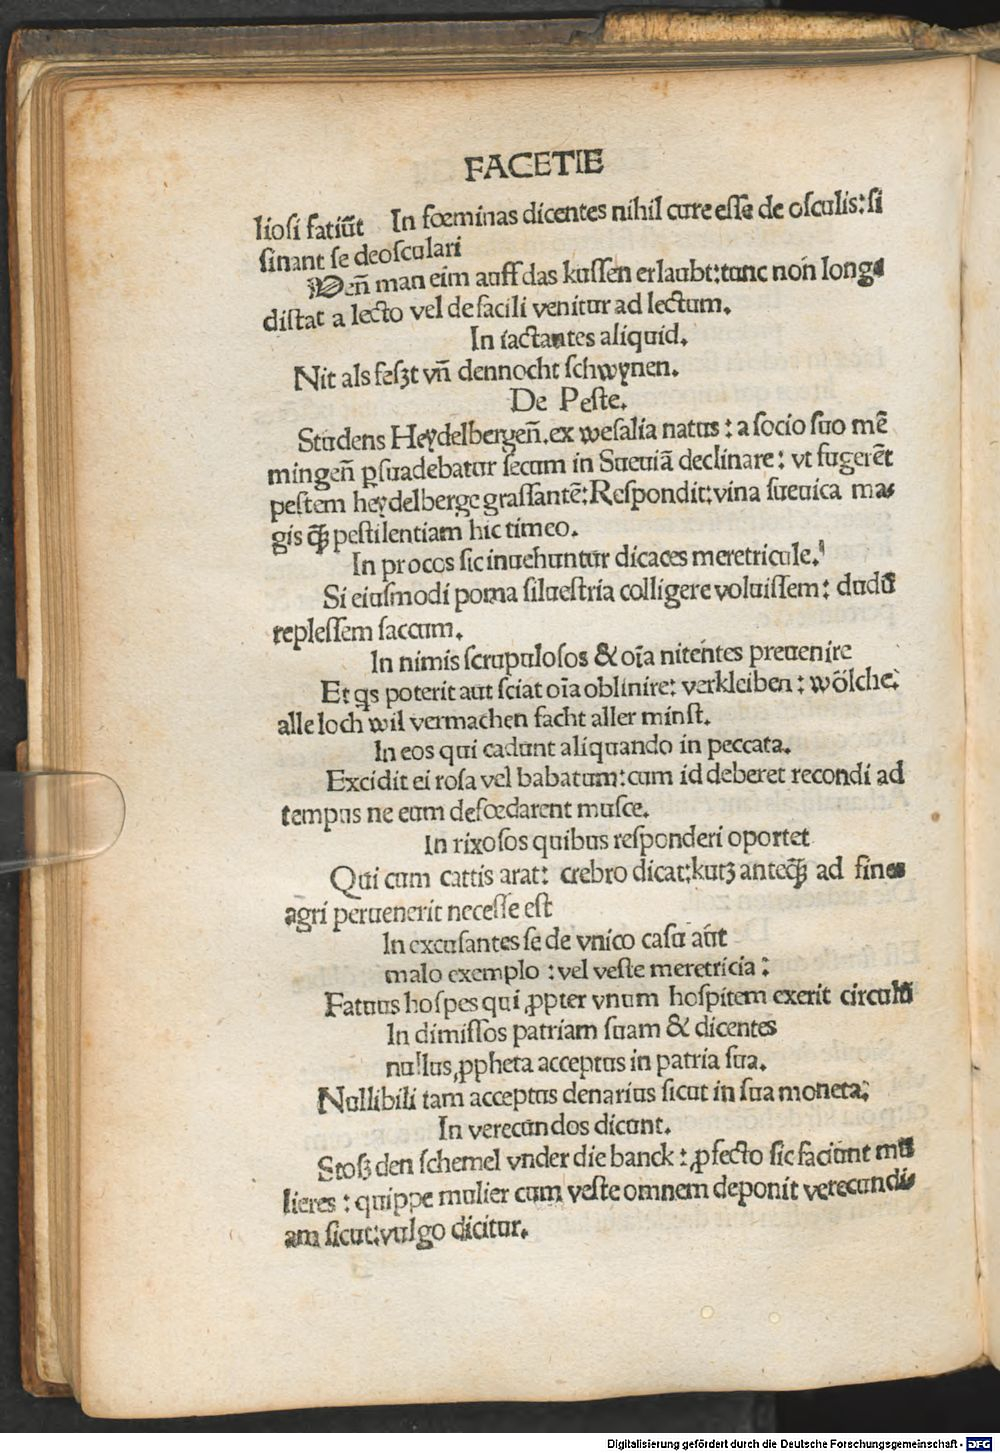 FACETIE
liosi fatiūt   In fœminas dicentes nihil cure esse de osculis: si
sinant se deosculari
Weñ man eim auff das kussen erlaubt: tunc non longe
distat a lecto vel de facili venitur ad lectum.
In iactantes aliquid.
Nit als fesʒt vñ dennocht schwynen.
De Peste.
Studens Heydelbergeñ. ex wesalia natus: a socio suo mē
mingeñ ꝑsuadebatur secum in Sueuiā declinare: vt fugerēt
pestem heydelberge grassantē: Respondit: vina sueuica ma⸗
gis ꝙ̄ pestilentiam hic timeo.
In procos sic inuehuntur dicaces meretricule.
Si eiusmodi poma siluestria colligere voluissem: dudū
replessem saccum.
In nimis scrupulosos & oīa nitentes preuenire
Et qs poterit aut sciat oīa oblinire: verkleiben: wölche
alle loch wil vermachen facht aller minst.
In eos qui cadunt aliquando in peccata.
Excidit ei rosa vel babatum: cum id deberet recondi ad
tempus ne eum defœdarent musce.
In rixosos quibus responderi oportet
Qui cum cattis arat: crebro dicat: kutʒ anteꝙ̄ ad fines
agri peruenerit necesse est
In excusantes se de vnico casu aūt
malo exemplo: vel veste meretricia:
Fatuus hospes qui ꝓpter vnum hospitem exerit circulū
In dimissos patriam suam & dicentes
nullus ꝓpheta acceptus in patria sua.
Nullibili tam acceptus denarius sicut in sua moneta:
In verecundos dicunt.
Stosʒ den schemel vnder die banck: ꝓfecto sic faciunt mu
lieres: quippe mulier cum veste omnem deponit verecundi⸗
am sicut: vulgo dicitur.
Digitalisierung gefördert durch die Deutsche Forschungsgemeinschaft - DFG